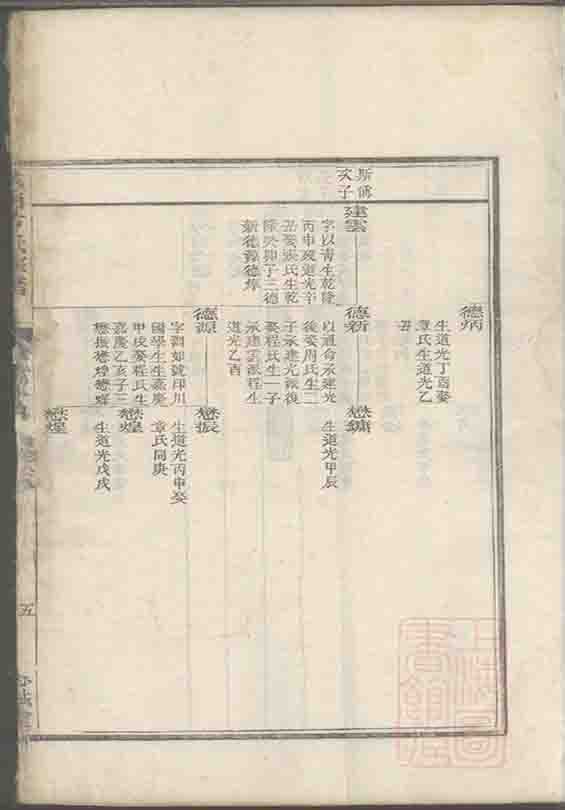 德炳
生道光丁酉娶
章氏生道光乙
丑
斯傅
次子
建雲
字以青生乾隆
丙申歿道光辛
丑娶張氏生乾
隆癸卯子三德
新德源德焞
德新
以道命承建光
後娶周氏生二
子承建光派復
娶程氏生一子
承建雲派程生
道光乙酉
懋鏞
生道光甲辰
德源
字嗣如號印川
國學生生嘉慶
甲戌娶程氏生
嘉慶乙亥子三
懋振懋煌懋輝
懋振
生道光丙申娶
章氏同庚
懋煌
生道光戊戌
懋煌
五
上海圖
書館藏